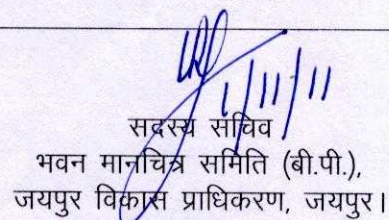 1/11/11
सदस्य सचिव
भवन मानचित्र समिति (बी.पी.),
जयपुर विकास प्राधिकरण, जयपुर।